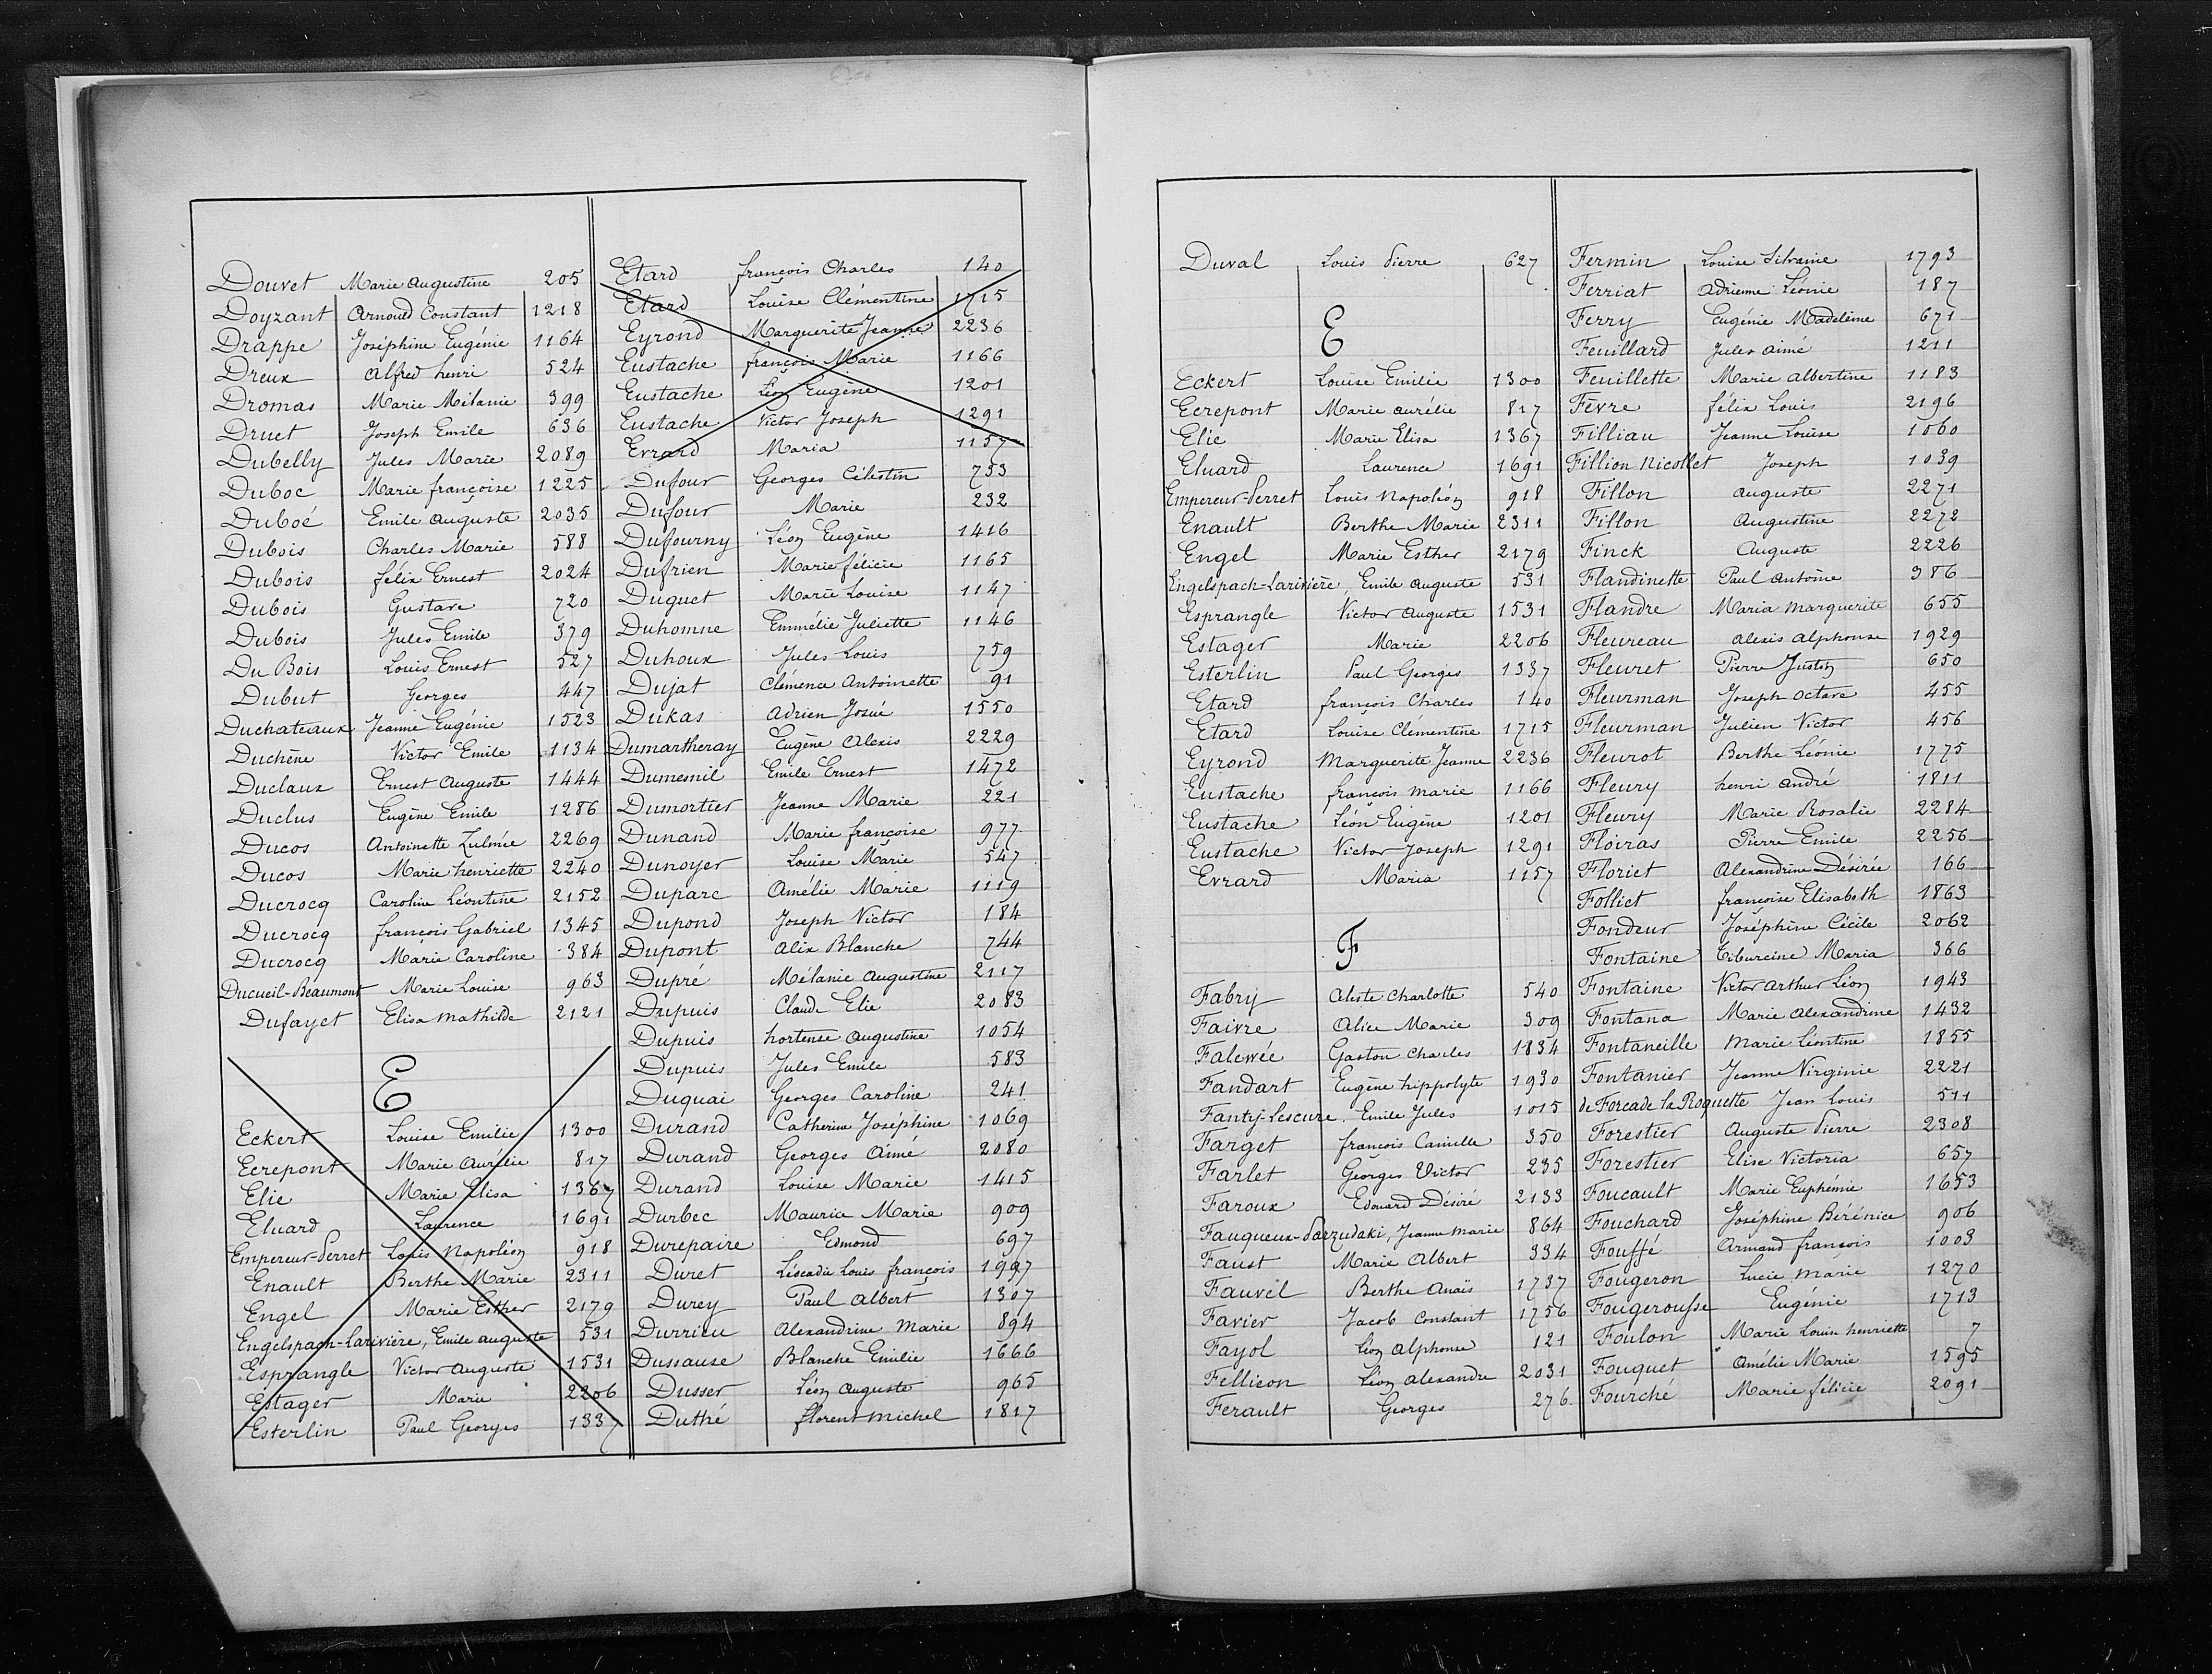 Douvet Marie Augustine 205
Doyzant Arnoud Constant 1218
Drappe Joséphine Eugénie 1164
Dreux Alfred henri 524
Dromas Marie Mélanie 399
Druet Joseph Emile 636
Dubelly Jules Marie 2089
Duboc Marie françoise 1225
Duboé Emile Auguste 2035
Dubois Charles Marie 588
Dubois félix Ernest 2024
Dubois Gustave 720
Dubois Jules Emile 379
Du Bois Louis Ernest 527
Dubut Georges 447
Duchateaux Jeanne Eugénie 1523
Duchêne Victor Emile 1134
Duclaux Ernest Auguste 1444
Duclus Eugène Emile 1286
Ducos Antoinette Zulmée 2269
Ducos Marie henriette 2240
Ducrocq Caroline Léontine 2152
Ducrocq françois Gabriel 1345
Ducrocq Marie Caroline 384
Ducueil-Beaumont Marie Louise 963
Dufayet Elisa Mathilde 2121
E
Eckert Louise Emilie 1300
Ecrepont Marie Aurélie 817
Elie Marie Elisa 1367
Eluard Laurence 1691
Empereur-Perret Louis Napoléon 918
Enault Berthe Marie 2311
Engel Marie Esther 2179
Engelspach-Larivière, Emile Auguste 531
Esprangle Victor Auguste 1531
Estager Marie 2206
Esterlin Paul Georges 1337
Etard françois Charles 140
Etard Louise Clémentine 1715
Eyrond Marguerite Jeanne 2236
Eustache françois Marie 1166
Eustache Léon Eugène 1201
Eustache Victor Joseph 1291
Evrard Maria 1157
Dufour Georges Célestin 753
Dufour Marie 232
Dufourny Léon Eugène 1416
Dufrien Marie félicie 1165
Duguet Marie Louise 1147
Duhomne Emmélie Juliette 1146
Duhoux Jules Louis 759
Dujat Clémence Antoinette 91
Dukas Adrien Josué 1550
Dumartheray Eugène Alexis 2229
Dumesnil Emile Ernest 1472
Dumortier Jeanne Marie 221
Dunand Marie françoise 977
Dunoyer Louise Marie 547
Duparc Amélie Marie 1119
Dupond Joseph Victor 184
Dupont Alix Blanche 744
Dupré Mélanie Augustine 2117
Dupuis Claude Elie 2083
Dupuis hortense Augustine 1054
Dupuis Jules Emile 583
Duquai Georges Caroline 241
Durand Catherine Joséphine 1069
Durand Georges Aimé 2080
Durand Louise Marie 1415
Durbec Maurice Marie 909
Durepaire Edmond 697
Duret Léocadie Louis françois 1997
Durey Paul Albert 1307
Durrieu Alexandrine Marie 894
Dussause Blanche Emilie 1666
Dusser Léon Auguste 965
Duthé florent Michel 1817
Duval Louis Pierre 627
E
Eckert Louise Emilie 1300
Ecrepont Marie Aurélie 817
Elie Marie Elisa 1367
Eluard Laurence 1691
Empereur-Perret Louis Napoléon 918
Enault Berthe Marie 2311
Engel Marie Esther 2179
Engelspach-Larivière Emile Auguste 531
Esprangle Victor Auguste 1531
Estager Marie 2206
Esterlin Paul Georges 1337
Etard françois Charles 140
Etard Louise Clémentine 1715
Eyrond Marguerite Jeanne 2236
Eustache françois Marie 1166
Eustache Léon Eugène 1201
Eustache Victor Joseph 1291
Evrard Maria 1157
F
Fabry Aliste Charlotte 540
Faivre Alice Marie 309
Falewée Gaston Charles 1834
Fandart Eugène hippolyte 1930
Fanty-Lescure Emile Jules 1015
Farget françois Camille 350
Farlet Georges Victor 235
Faroux Edouard Désiré 2133
Fauqueux-Parzudaki, Jeanne Marie 864
Faust Marie Albert 334
Fauvel Berthe Anaïs 1737
Favier Jacob Constant 1756
Fayol Léon Alphonse 121
Fellieon Léon Alexandre 2031
Ferault Georges 276
Fermin Louise Silvaine 1793
Ferriat Adrienne Léonie 187
Ferry Eugénie Madeleine 671
Feuillard Jules Aimé 1211
Feuillette Marie Albertine 1183
Fèvre félix Louis 2196
Filliau Jeanne Louise 1060
Fillion Nicollet Joseph 1039
Fillon Auguste 2271
Fillon Augustine 2272
Finck Auguste 2226
Flandinette Paul Antoine 386
Flandre Maria Marguerite 655
Fleureau Alexis Alphonse 1929
Fleuret Pierre Justin 650
Fleurman Joseph Octave 455
Fleurman Julien Victor 456
Fleurot Berthe Léonie 1775
Fleury henri André 1811
Fleury Marie Rosalie 2284
Floiras Pierre Emile 2256
Floriet Alexandrine Désirée 166
Folliet françoise Elisabeth 1863
Fondeur Joséphine Cécile 2062
Fontaine Tiburcine Maria 366
Fontaine Victor Arthur Léon 1943
Fontana Marie Alexandrine 1432
Fontaneille Marie Léontine 1855
Fontanier Jeanne Virginie 2221
de Forcade la Roquette Jean Louis 511
Forestier Auguste Pierre 2308
Forestier Elise Victoria 657
Foucault Marie Euphémie 1653
Fouchard Joséphine Bérénice 906
Fouffé Armand françois 1003
Fougeron Lucie Marie 1270
Fougerousse Eugénie 1713
Foulon Marie Louise henriette 7
Fouquet Amélie Marie 1595
Fourché Marie félicie 2091